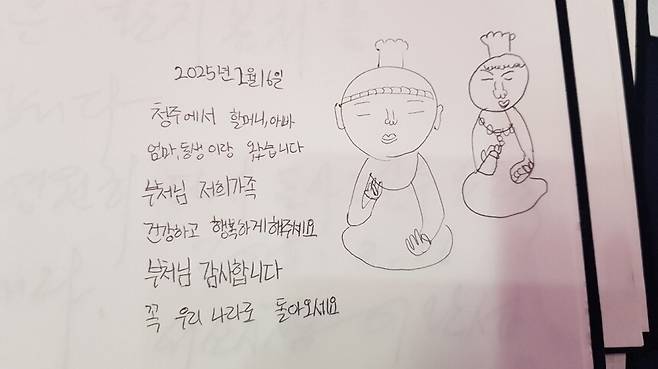 2025년 2월 16일
청주에서 할머니, 아빠
엄마, 동생이랑 왔습니다
부처님 저희가족
건강하고 행복하게해주세요
부처님 감사합니다
꼭 우리 나라로 돌아오세요